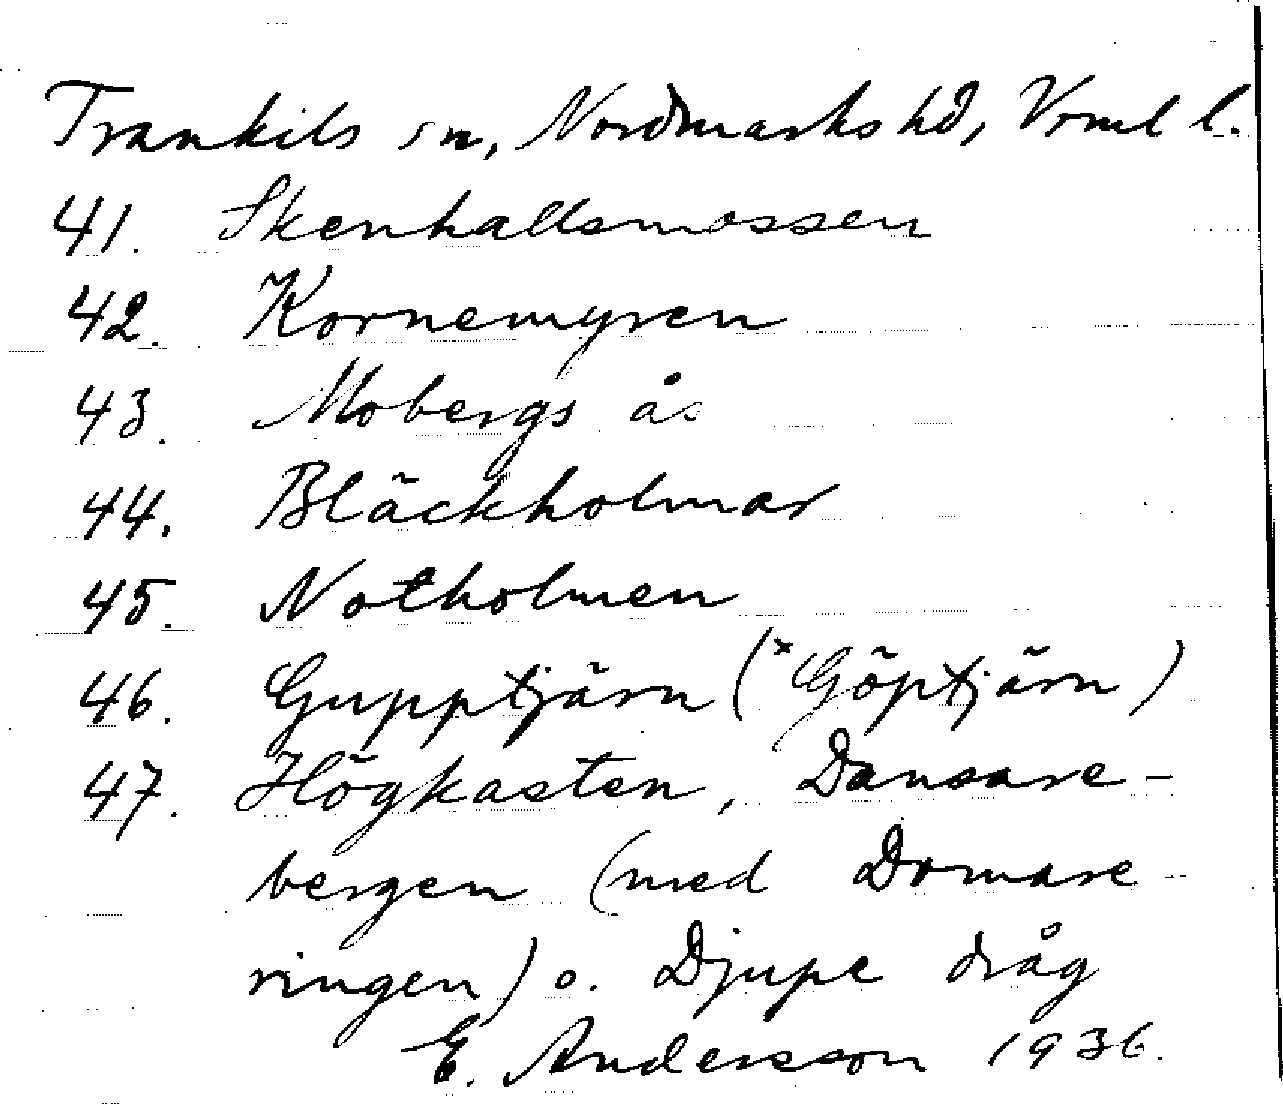 Trankils sn, Nordmarks hd, Vrml l.
41. Skenhallsmossen
42. Kornemyren
43. Mobergs ås
44. Bläckholmar
45. Notholmen
46. Gupptjärn (*Göptjärn)
47. Högkasten, Dansare-
bergen (med Domare-
ringen) o. Djupe dråg
E. Andersson 1936.